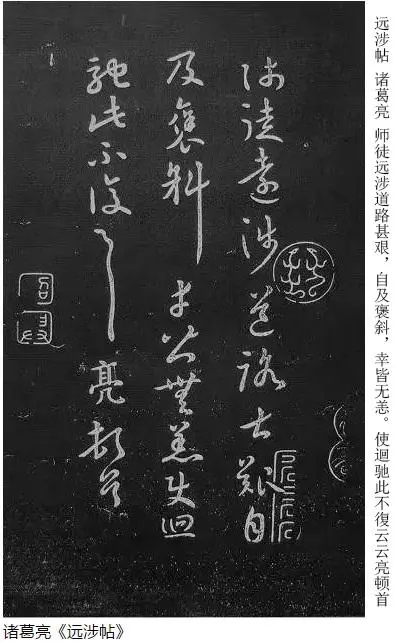 远涉帖 诸葛亮 师徒远涉道路甚艰，自及褒斜，幸皆无恙。使迴驰此不復云云亮顿首
師徒遠涉道路甚艱自
及褒斜幸皆無恙使迴
馳此不復云云亮頓首
诸葛亮《远涉帖》